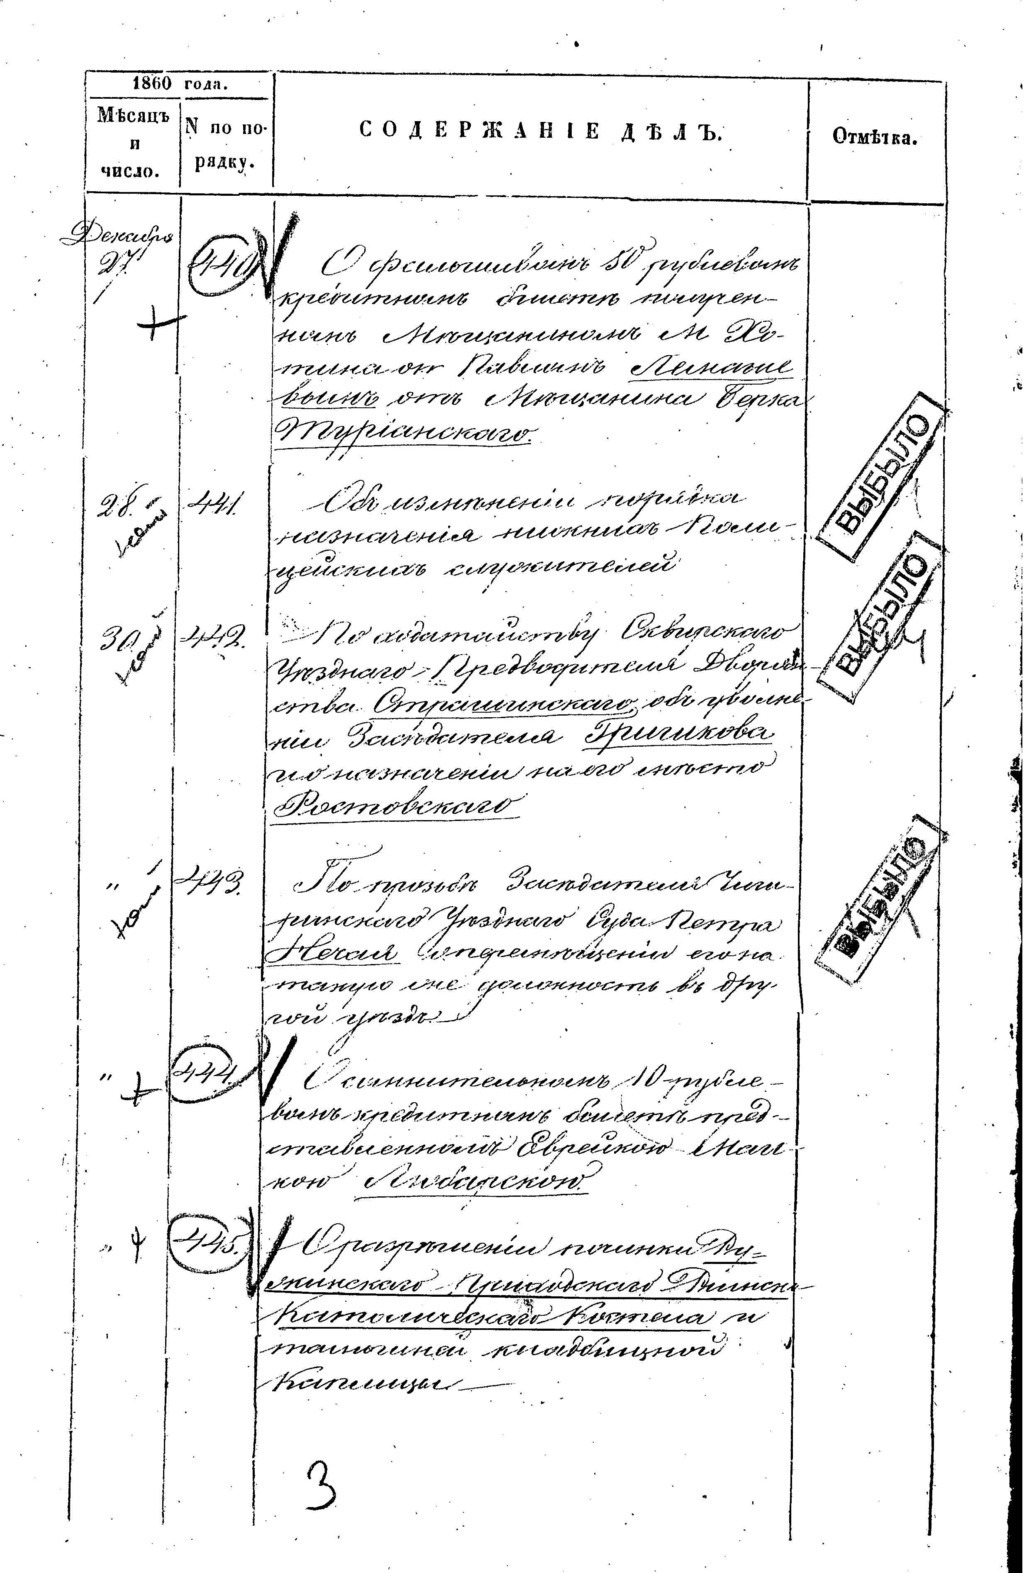 1860 года.
Мѣсяцъ и число.
N по порядку.
СОДЕРЖАНІЕ ДѢЛЪ.
Отмѣтка.
Декабря
27
440
О фальшивомъ 50 рублевомъ
кредитномъ билетѣ получен-
нымъ Мѣщаниномъ М
от Мѣщанина Берка
Турianскаго.
28.
441.
Объ измѣненіи порядка
назначенія нижнихъ Поли-
цейскихъ служителей
ВЫБЫЛО
30
442.
По ходатайству Сквирскаго
Уѣзднаго Предводителя Дворян
ства Страшинскаго, объ уволне-
ніи Засѣдателя Григикова
и о назначеніи на его мѣсто
Ростовскаго
ВЫБЫЛО
"
443.
По прозьбѣ Засѣдателя Чиги-
ринскаго Уѣзднаго Суда Петра
Нечая о перемѣщеніи его на
таковую же должность въ дру-
гой уѣздъ
ВЫБЫЛО
"
444.
О сомнительномъ 10 рубле-
вомъ кредитномъ билетѣ пред-
ставленномъ Еврейкою Мал
кою
"
445.
О разрѣшеніи починки
Приходскаго Римско
Католическаго Костела и
тамошней кладбищной
Каплицы
3